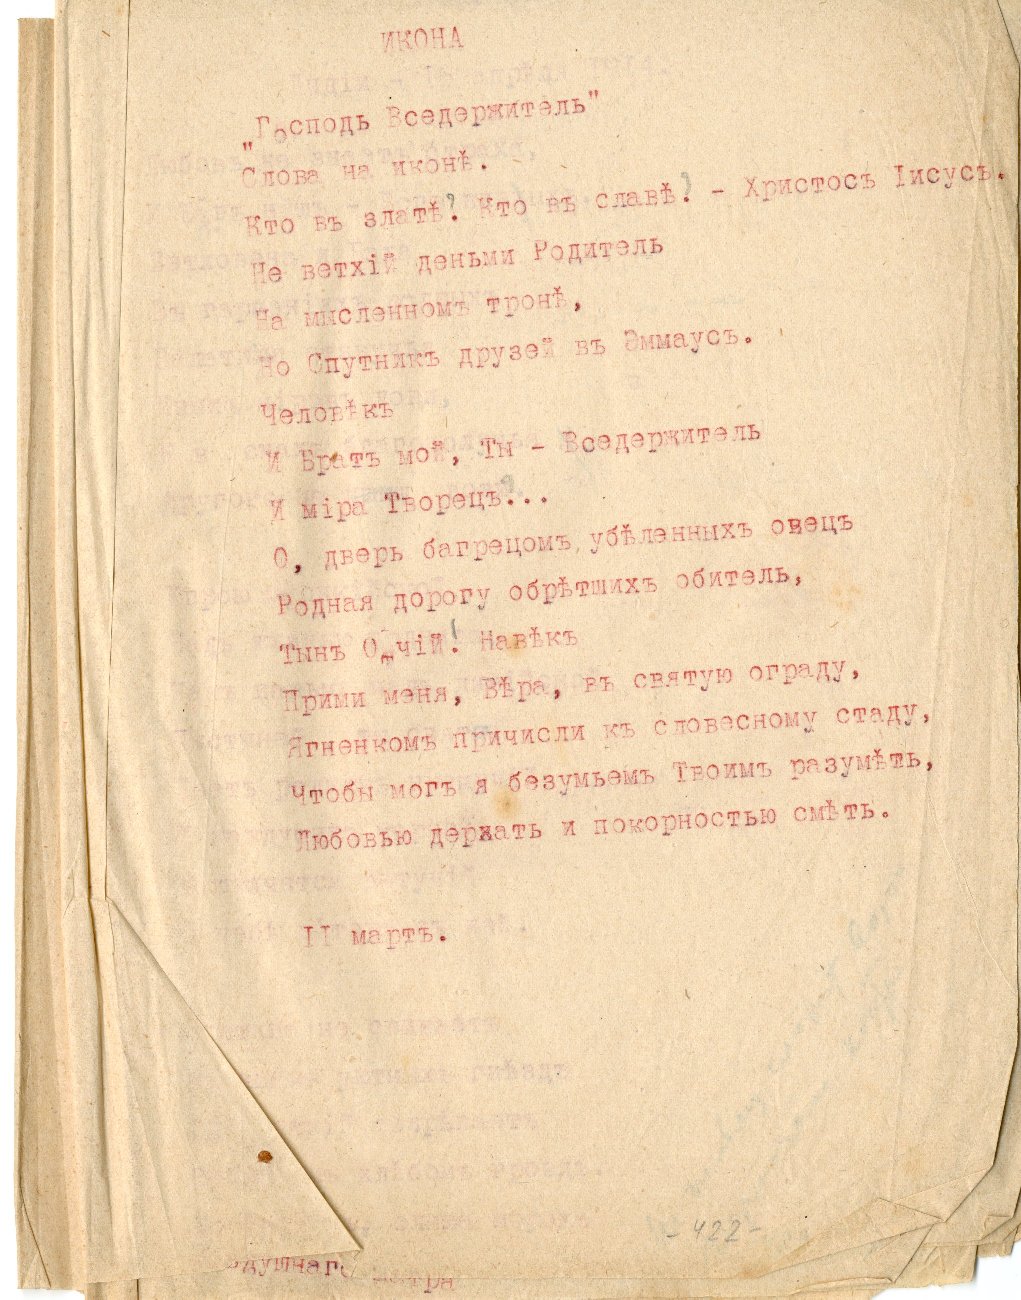 ИКОНА
"Господь Вседержитель"
Слова на иконѣ.
Кто въ златѣ? Кто въ славѣ? - Христосъ Іисусъ.
Не ветхій деньми Родитель
На мысленномъ тронѣ,
Но Спутникъ друзей въ Эммаусъ.
Человѣкъ
И Братъ мой, Ты - Вседержитель
И міра Творецъ?..
О, дверь багрецомъ убѣленныхъ овецъ
Родная дорогу обрѣтшихъ обитель,
Тынъ Отчій! Навѣкъ
Прими меня, Вѣра, въ святую ограду,
Ягненкомъ причисли къ словесному стаду,
Чтобы могъ я безумьемъ Твоимъ разумѣть,
Любовью держать и покорностью смѣть.
II мартъ.
-422-